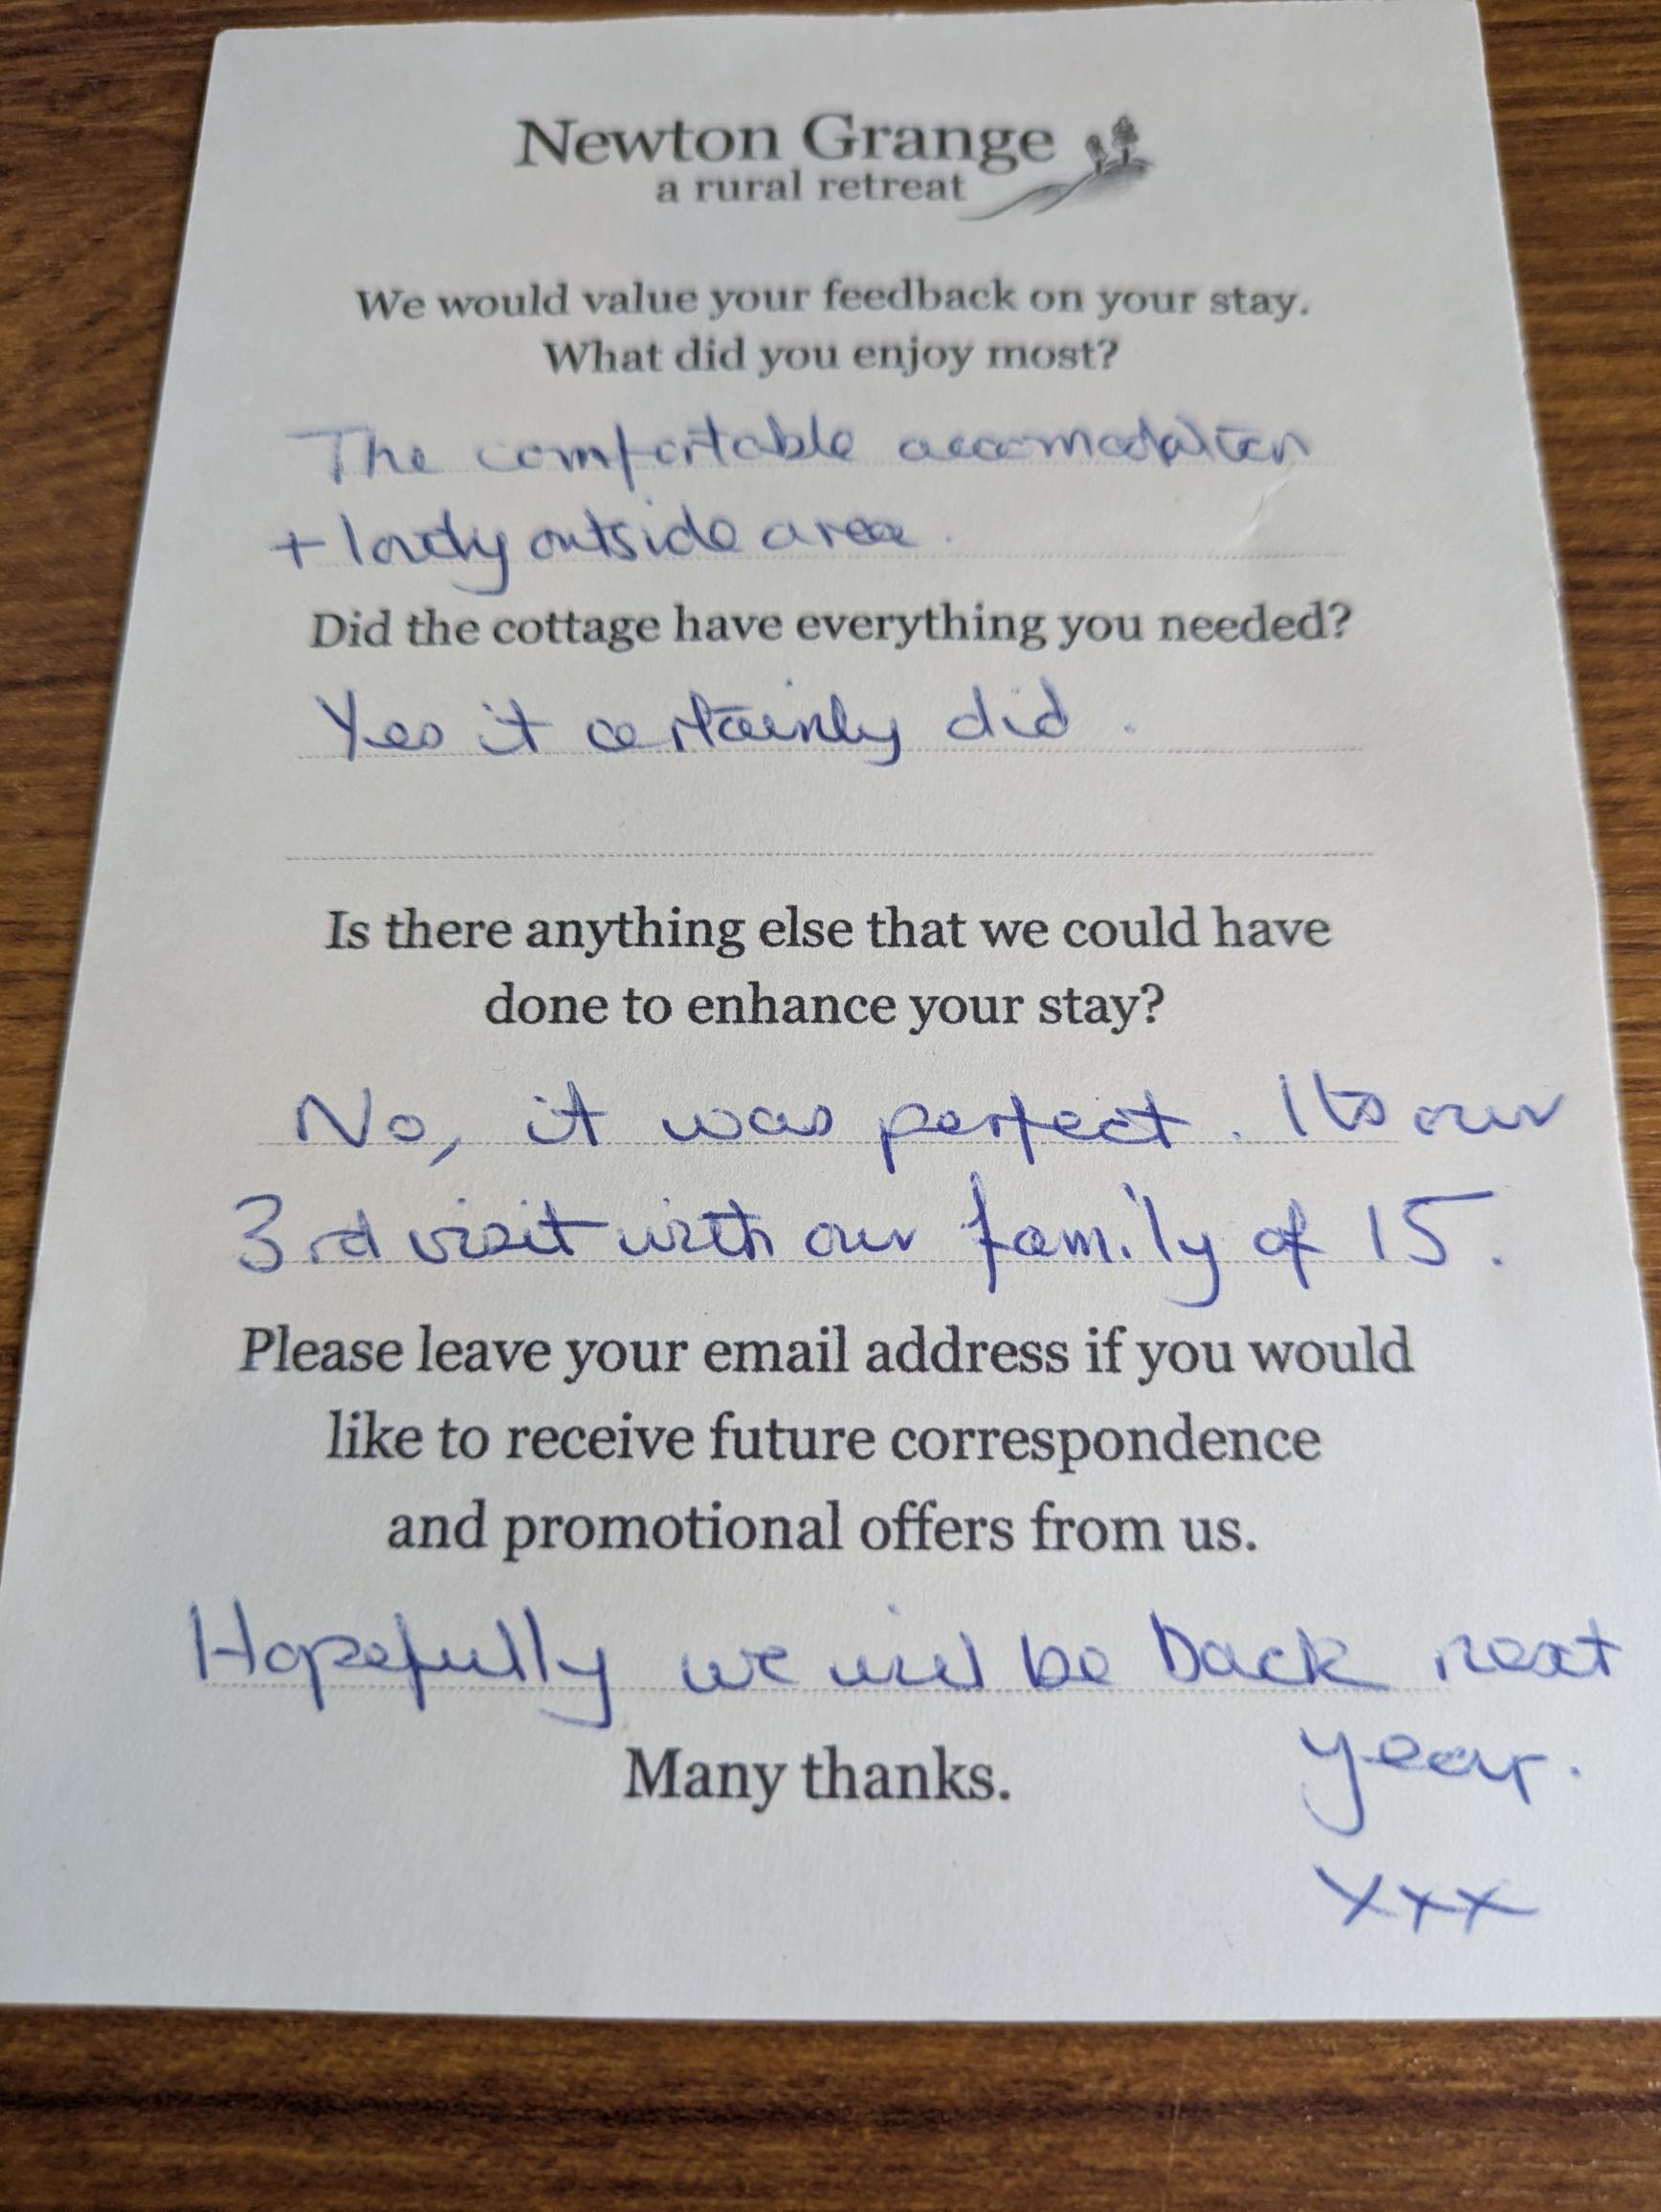 Newton Grange
a rural retreat
We would value your feedback on your stay.
What did you enjoy most?
The comfortable accomodation
+ lovely outside area.
Did the cottage have everything you needed?
Yes it certainly did.
Is there anything else that we could have
done to enhance your stay?
No, it was perfect. Its our
3rd visit with our family of 15.
Please leave your email address if you would
like to receive future correspondence
and promotional offers from us.
Hopefully we will be back next
year.
Many thanks.
xxx